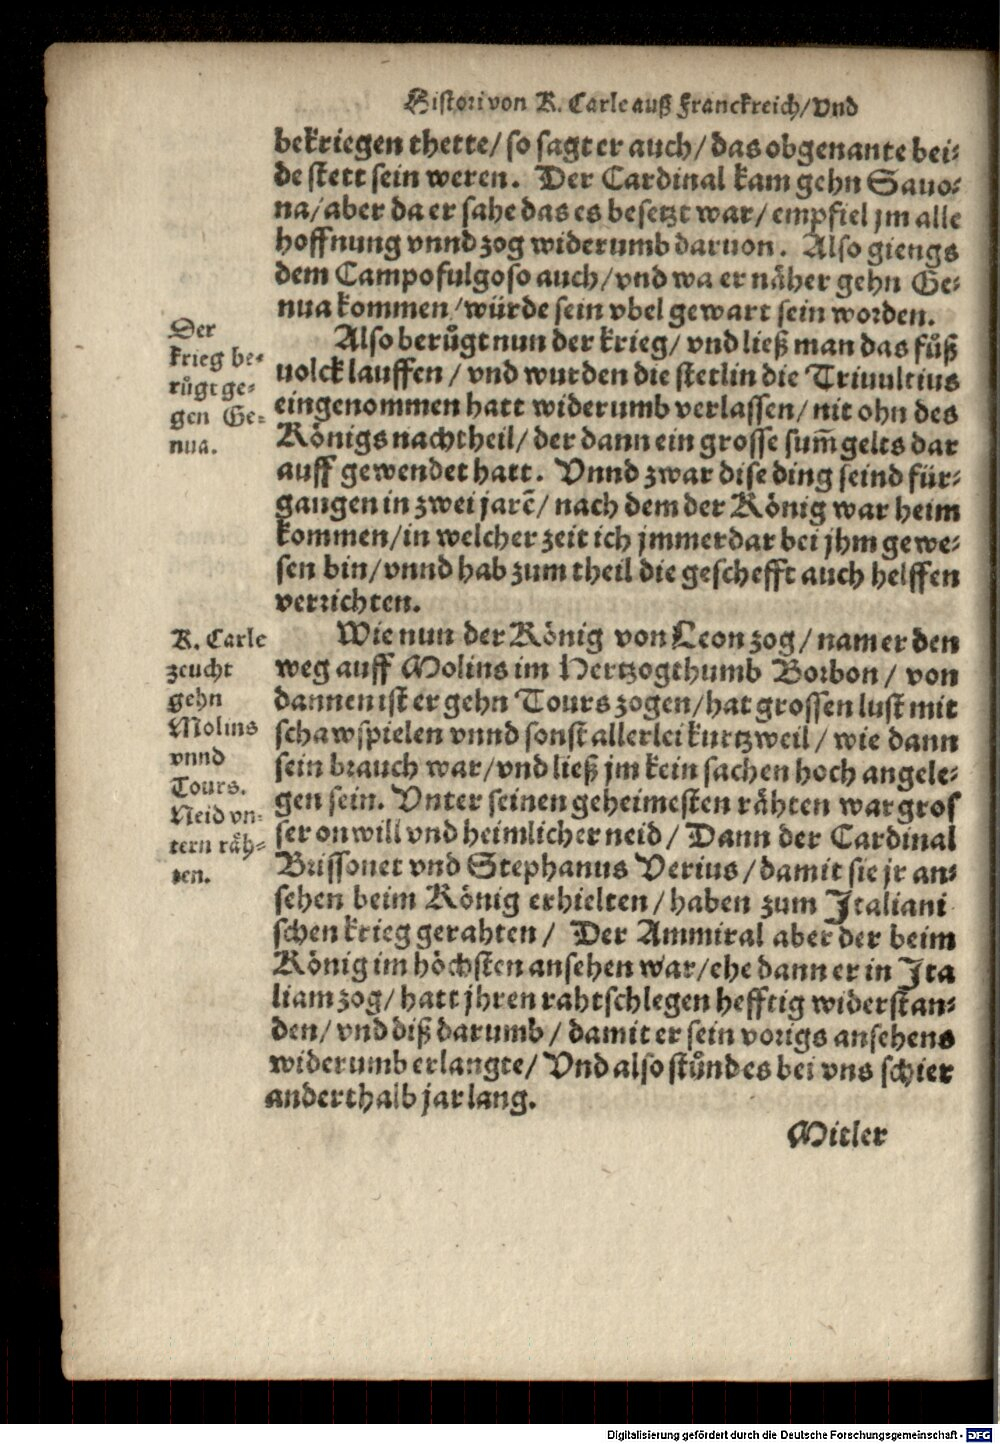 Histori von K. Carle auß Franckreich/Vnd
bekriegen thette/ so sagt er auch/ das obgenante bei⸗
de stett sein weren. Der Cardinal kam gehn Sauo⸗
na/ aber da er sahe das es besetzt war/ empfiel jm alle
hoffnung vnnd zog widerumb daruon. Also giengs
dem Campofulgoso auch/ vnd wa er näher gehn Ge⸗
nua kommen/ würde sein vbel gewart sein worden.
Der
krieg be⸗
rügt ge⸗
gen Ge⸗
nua.
Also berůgt nun der krieg/ vnd ließ man das fůß
uolck lauffen/ vnd wurden die stetlin die Triuultius
eingenommen hatt widerumb verlassen/ nit ohn des
Königs nachtheil/ der dann ein grosse sum̃ gelts dar
auff gewendet hatt. Vnnd zwar dise ding seind für⸗
gangen in zwei jarẽ/ nach dem der König war heim
kommen/ in welcher zeit ich jmmerdar bei jhm gewe⸗
sen bin/ vnnd hab zum theil die geschefft auch helffen
verrichten.
K. Carle
zeucht
gehn
Molins
vnnd
Tours.
Neid vn⸗
tern räh⸗
ten.
Wie nun der König von Leon zog/ nam er den
weg auff Molins im Hertzogthumb Borbon/ von
dannen ist er gehn Tours zogen/ hat grossen lust mit
schawspielen vnnd sonst allerlei kurtzweil/ wie dann
sein brauch war/ vnd ließ jm kein sachen hoch angele⸗
gen sein. Vnter seinen geheimesten rähten war gros
ser onwill vnd heimlicher neid/ Dann der Cardinal
Brissonet vnd Stephanus Verius/ damit sie jr an⸗
sehen beim König erhielten/ haben zum Italiani
schen krieg gerahten/ Der Ammiral aber der beim
König im höchsten ansehen war/ ehe dann er in Ita
liam zog/ hatt jhren rahtschlegen hefftig widerstan⸗
den/ vnd diß darumb/ damit er sein vorigs ansehens
widerumb erlangte/ Vnd also stůnd es bei vns schier
anderthalb jar lang.
Mitler
Digitalisierung gefördert durch die Deutsche Forschungsgemeinschaft - DFG